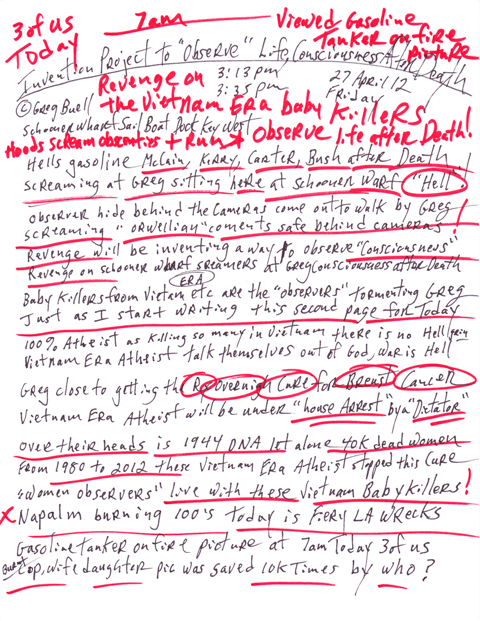 3 of us 7am Viewed Gasoline
Today Tanker on fire
picture
Invention Project to "Observe" Life, Consciousness After Death
Revenge on 3:13 pm 27 April 12
3:35 pm Friday
© Greg Buell the Vietnam ERA baby Killers
Schooner Wharf Sail Boat Dock Key West
Hoods scream obsenties + Run → Observe life after Death!
Hells gasoline McCain, Kerry, Carter, Bush after Death
screaming at Greg sitting here at schooner warf "Hell"!
observer hide behind the cameras come out to walk by Greg
screaming "orwellian" coments safe behind cameras!
Revenge will be inventing a way to observe "Consciousness"
Revenge on schooner wharf sreamers at Greg Consciousness after Death
ERA
Baby Killers from Vietam etc are the "observers" tormenting Greg
Just as I start writing this second page for Today
100% Atheist as killing so many in Vietnam there is no Hell
Vietnam ERA Atheist talk themselves out of God, War is Hell
Greg close to getting the Rx Overnigh Cure for Breast Cancer
Vietnam Era Atheist will be under "house Arrest" by a "Dictator"
over their heads is 1944 DNA let alone 40K dead women
From 1980 to 2012 these Vietnam Era Atheist stopped this cure
& women observers" live with these Vietnam Baby Killers!
X Napalm burning 100's today is Fiery LA wrecks
Gasoline tanker on fire picture at 7am Today 3 of us
Cop, wife daughter pic was saved 10K Times by who?